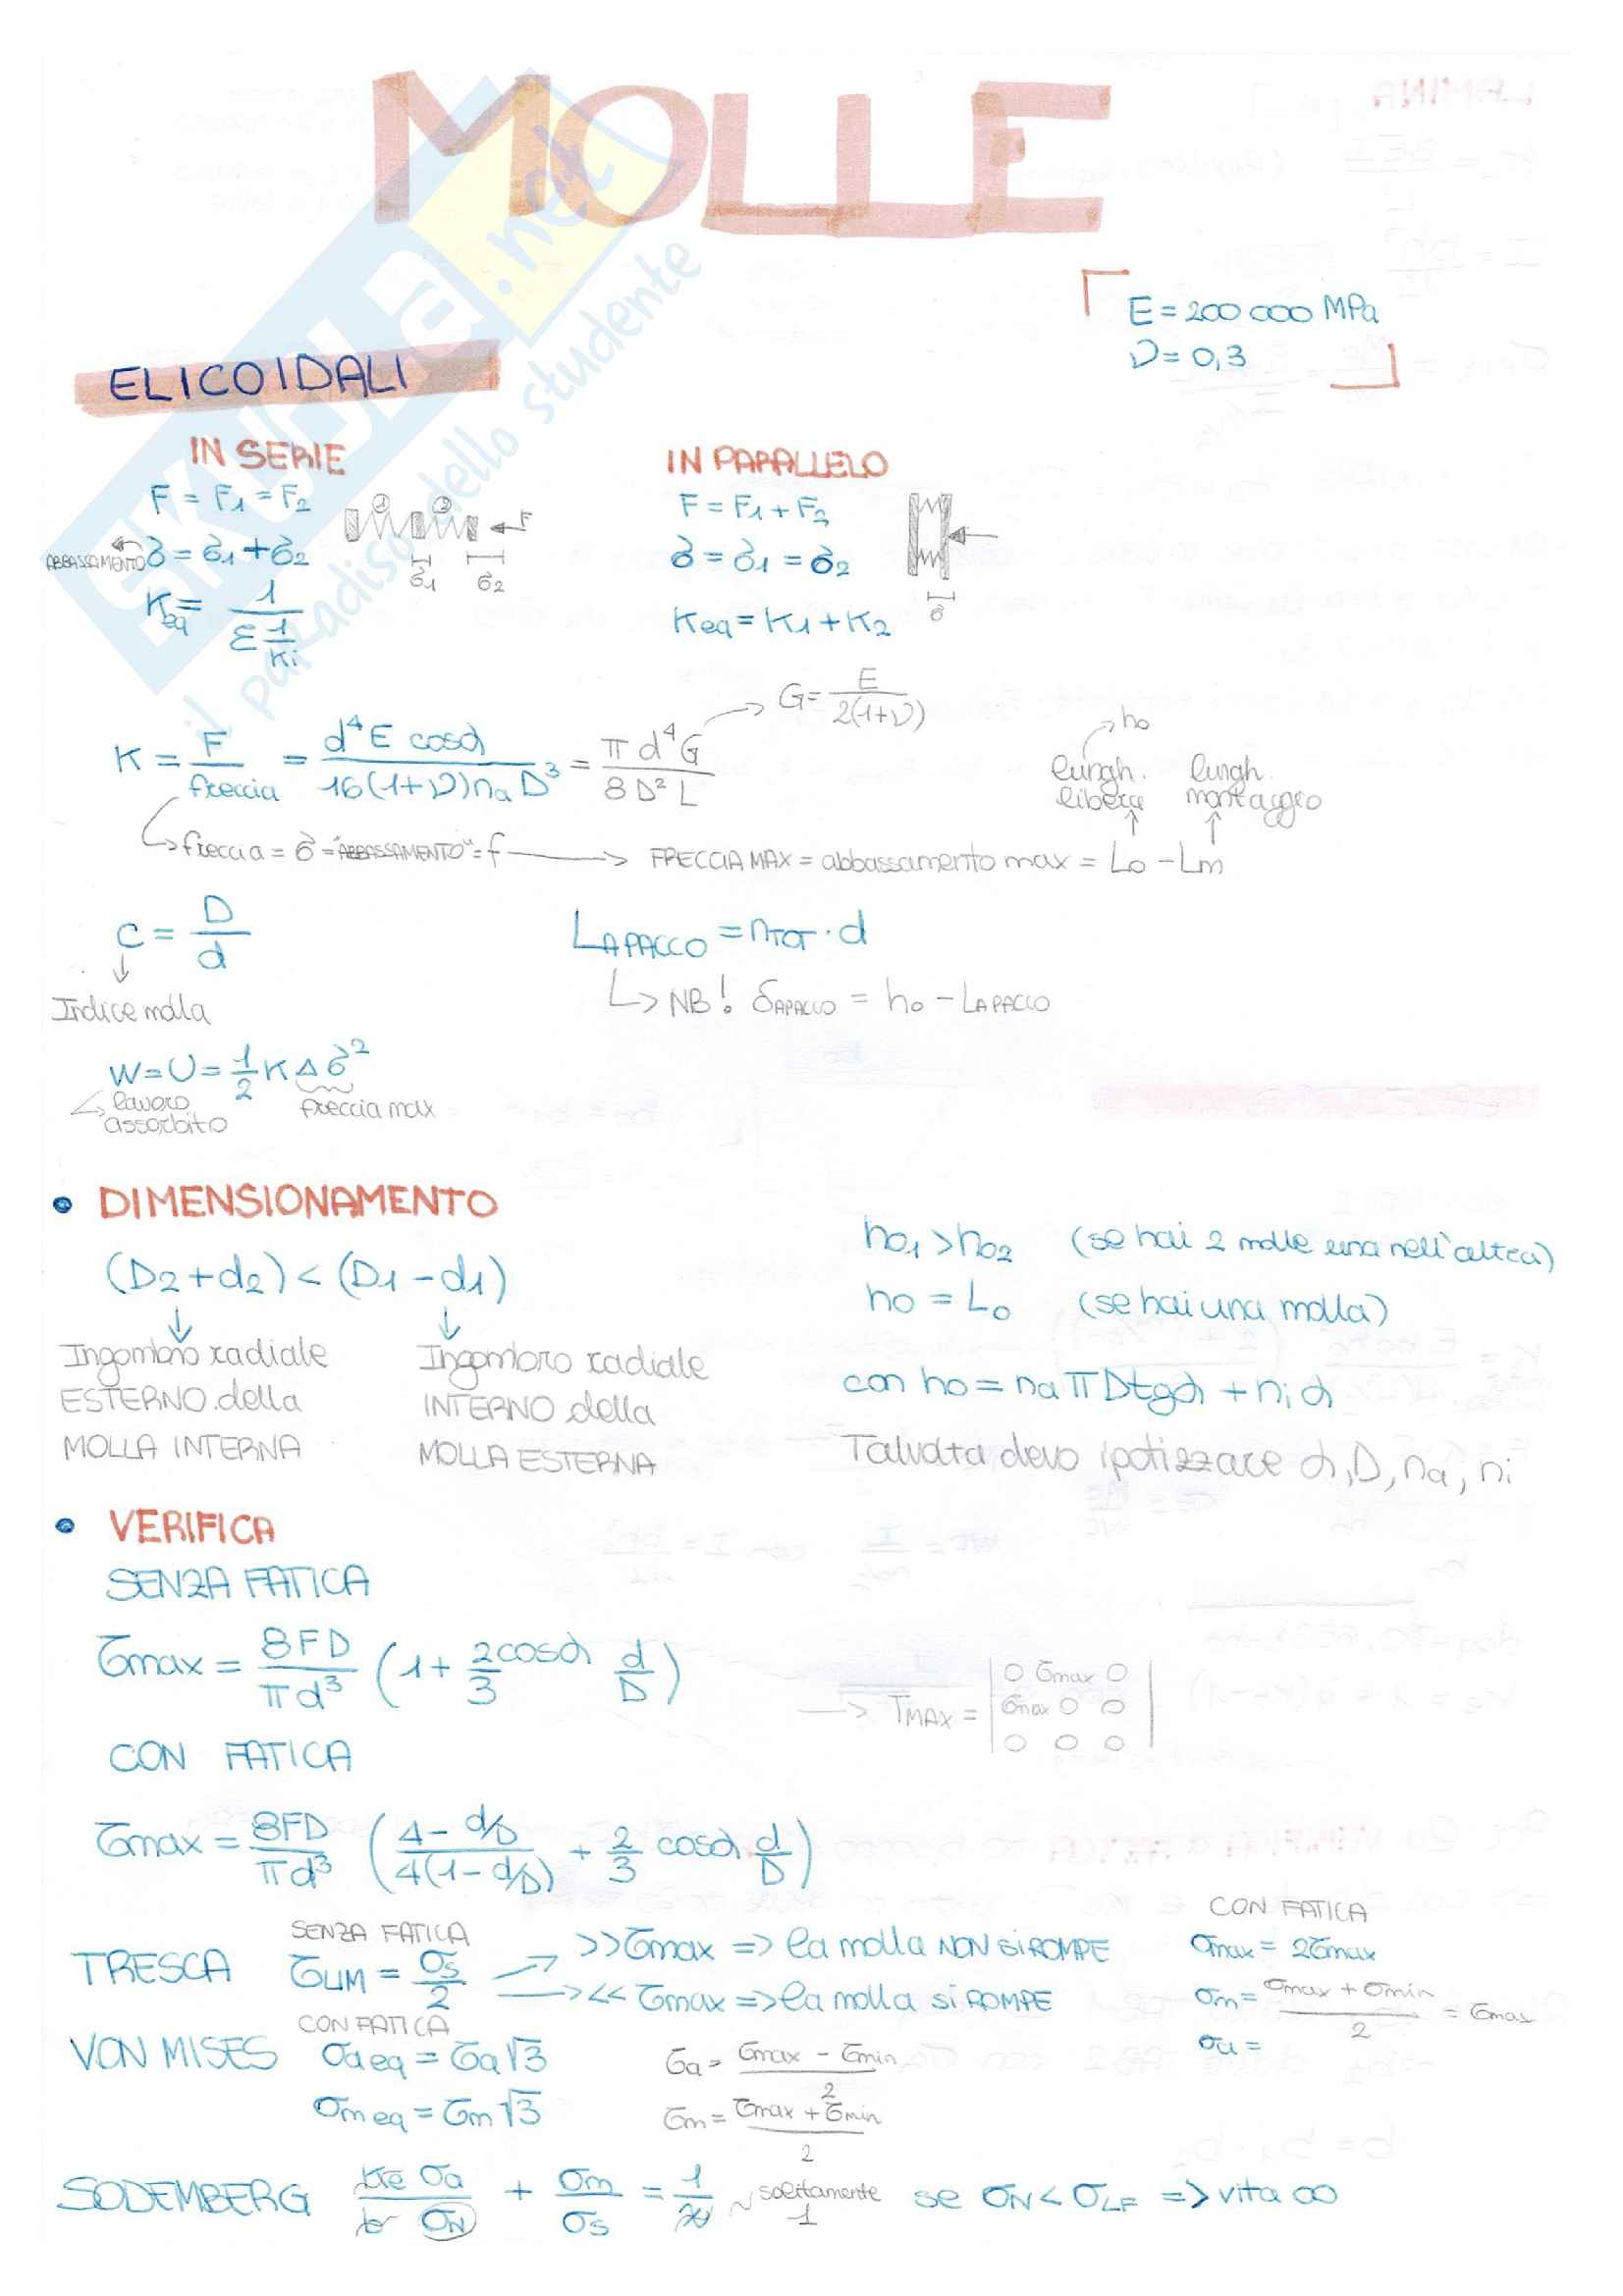 MOLLE
SKUOLA.net
il paradiso dello studente
E = 200 000 MPa
ν = 0,3
ELICOIDALI
IN SERIE
F = F1 = F2
ABBASSAMENTO δ = δ1 + δ2
Keq = 1 / Σ 1/Ki
1 2 F
δ1 δ2
IN PARALLELO
F = F1 + F2
δ = δ1 = δ2
Keq = K1 + K2
δ
K = F/freccia = d⁴ E cosα / 16(1+ν) na D³ = π d⁴ G / 8 D² L
G = E / 2(1+ν)
freccia = δ = "ABBASSAMENTO" = f → FRECCIA MAX = abbassamento max = Lo - Lm
ho
lungh. libera
lungh. montaggio
C = D/d
Indice molla
LA PACCO = nTOT · d
NB! δA PACCO = ho - LA PACCO
W = U = 1/2 K Δδ²
lavoro assorbito
freccia max
• DIMENSIONAMENTO
(D2 + d2) < (D1 - d1)
Ingombro radiale
ESTERNO della
MOLLA INTERNA
Ingombro radiale
INTERNO della
MOLLA ESTERNA
ho1 > ho2 (se hai 2 molle una nell'altra)
ho = Lo (se hai una molla)
con ho = na π D tgα + ni d
Talvolta devo ipotizzare α, D, na, ni
• VERIFICA
SENZA FATICA
τmax = 8FD / πd³ (1 + 2/3 cosα d/D)
→ TMAX = | 0 τmax 0 |
| τmax 0 0 |
| 0 0 0 |
CON FATICA
τmax = 8FD / πd³ (4 - d/D / 4(1 - d/D) + 2/3 cosα d/D)
TRESCA
SENZA FATICA
τLIM = σs / 2
>> τmax => la molla NON SI ROMPE
<< τmax => la molla si ROMPE
CON FATICA
σmax = 2τmax
σm = σmax + σmin / 2 = τmax
σa =
VON MISES
CON FATICA
σa eq = τa √3
σm eq = τm √3
τa = τmax - τmin / 2
τm = τmax + τmin / 2
SODEMBERG
σa / σN + σm / σs = 1 / X ~ solitamente 1
se σN < σLF => vita ∞